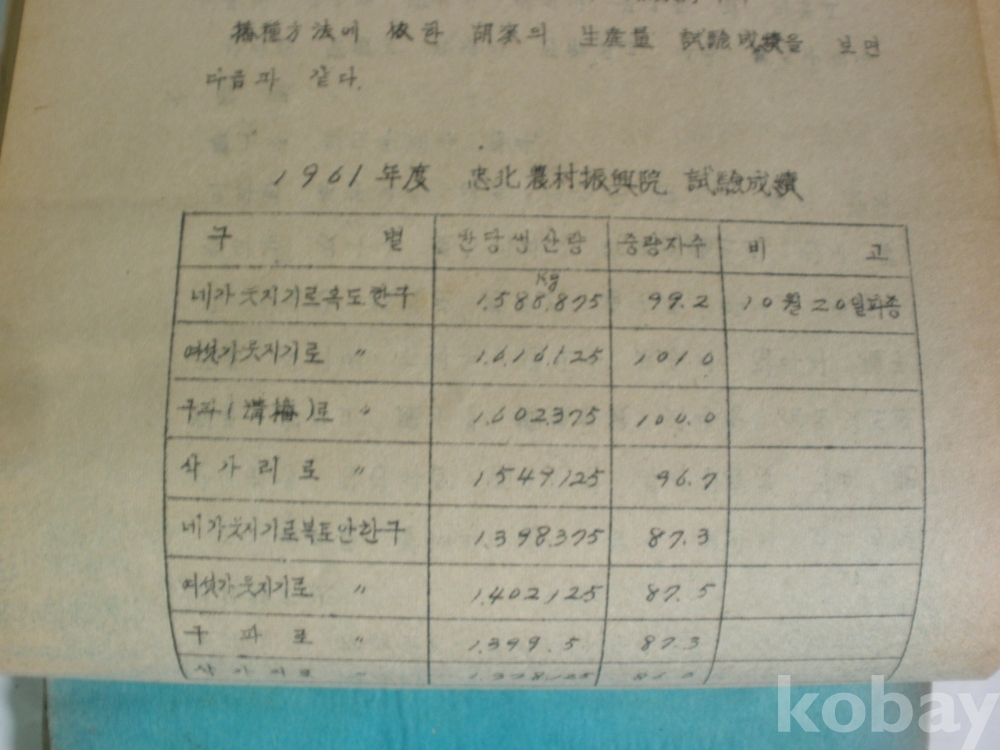 播種方法에 依한 胡麥의 生産量 試驗成績을 보면
다음과 같다.
1961年度 忠北農村振興院 試驗成績
구 별 반당생산량 중량지수 비 고
Kg
네가웃지기로복토한구 1,588,875 99.2 10월20일파종
여섯가웃지기로 〃 1,616,125 101.0
구파( )로 〃 1,602,375 100.0
삭가리로 〃 1,549,125 96.7
네가웃지기로복토안한구 1,398,375 87.3
여섯가웃지기로 〃 1,402,125 87.5
구파로 〃 1,399.5 87.3
kobay